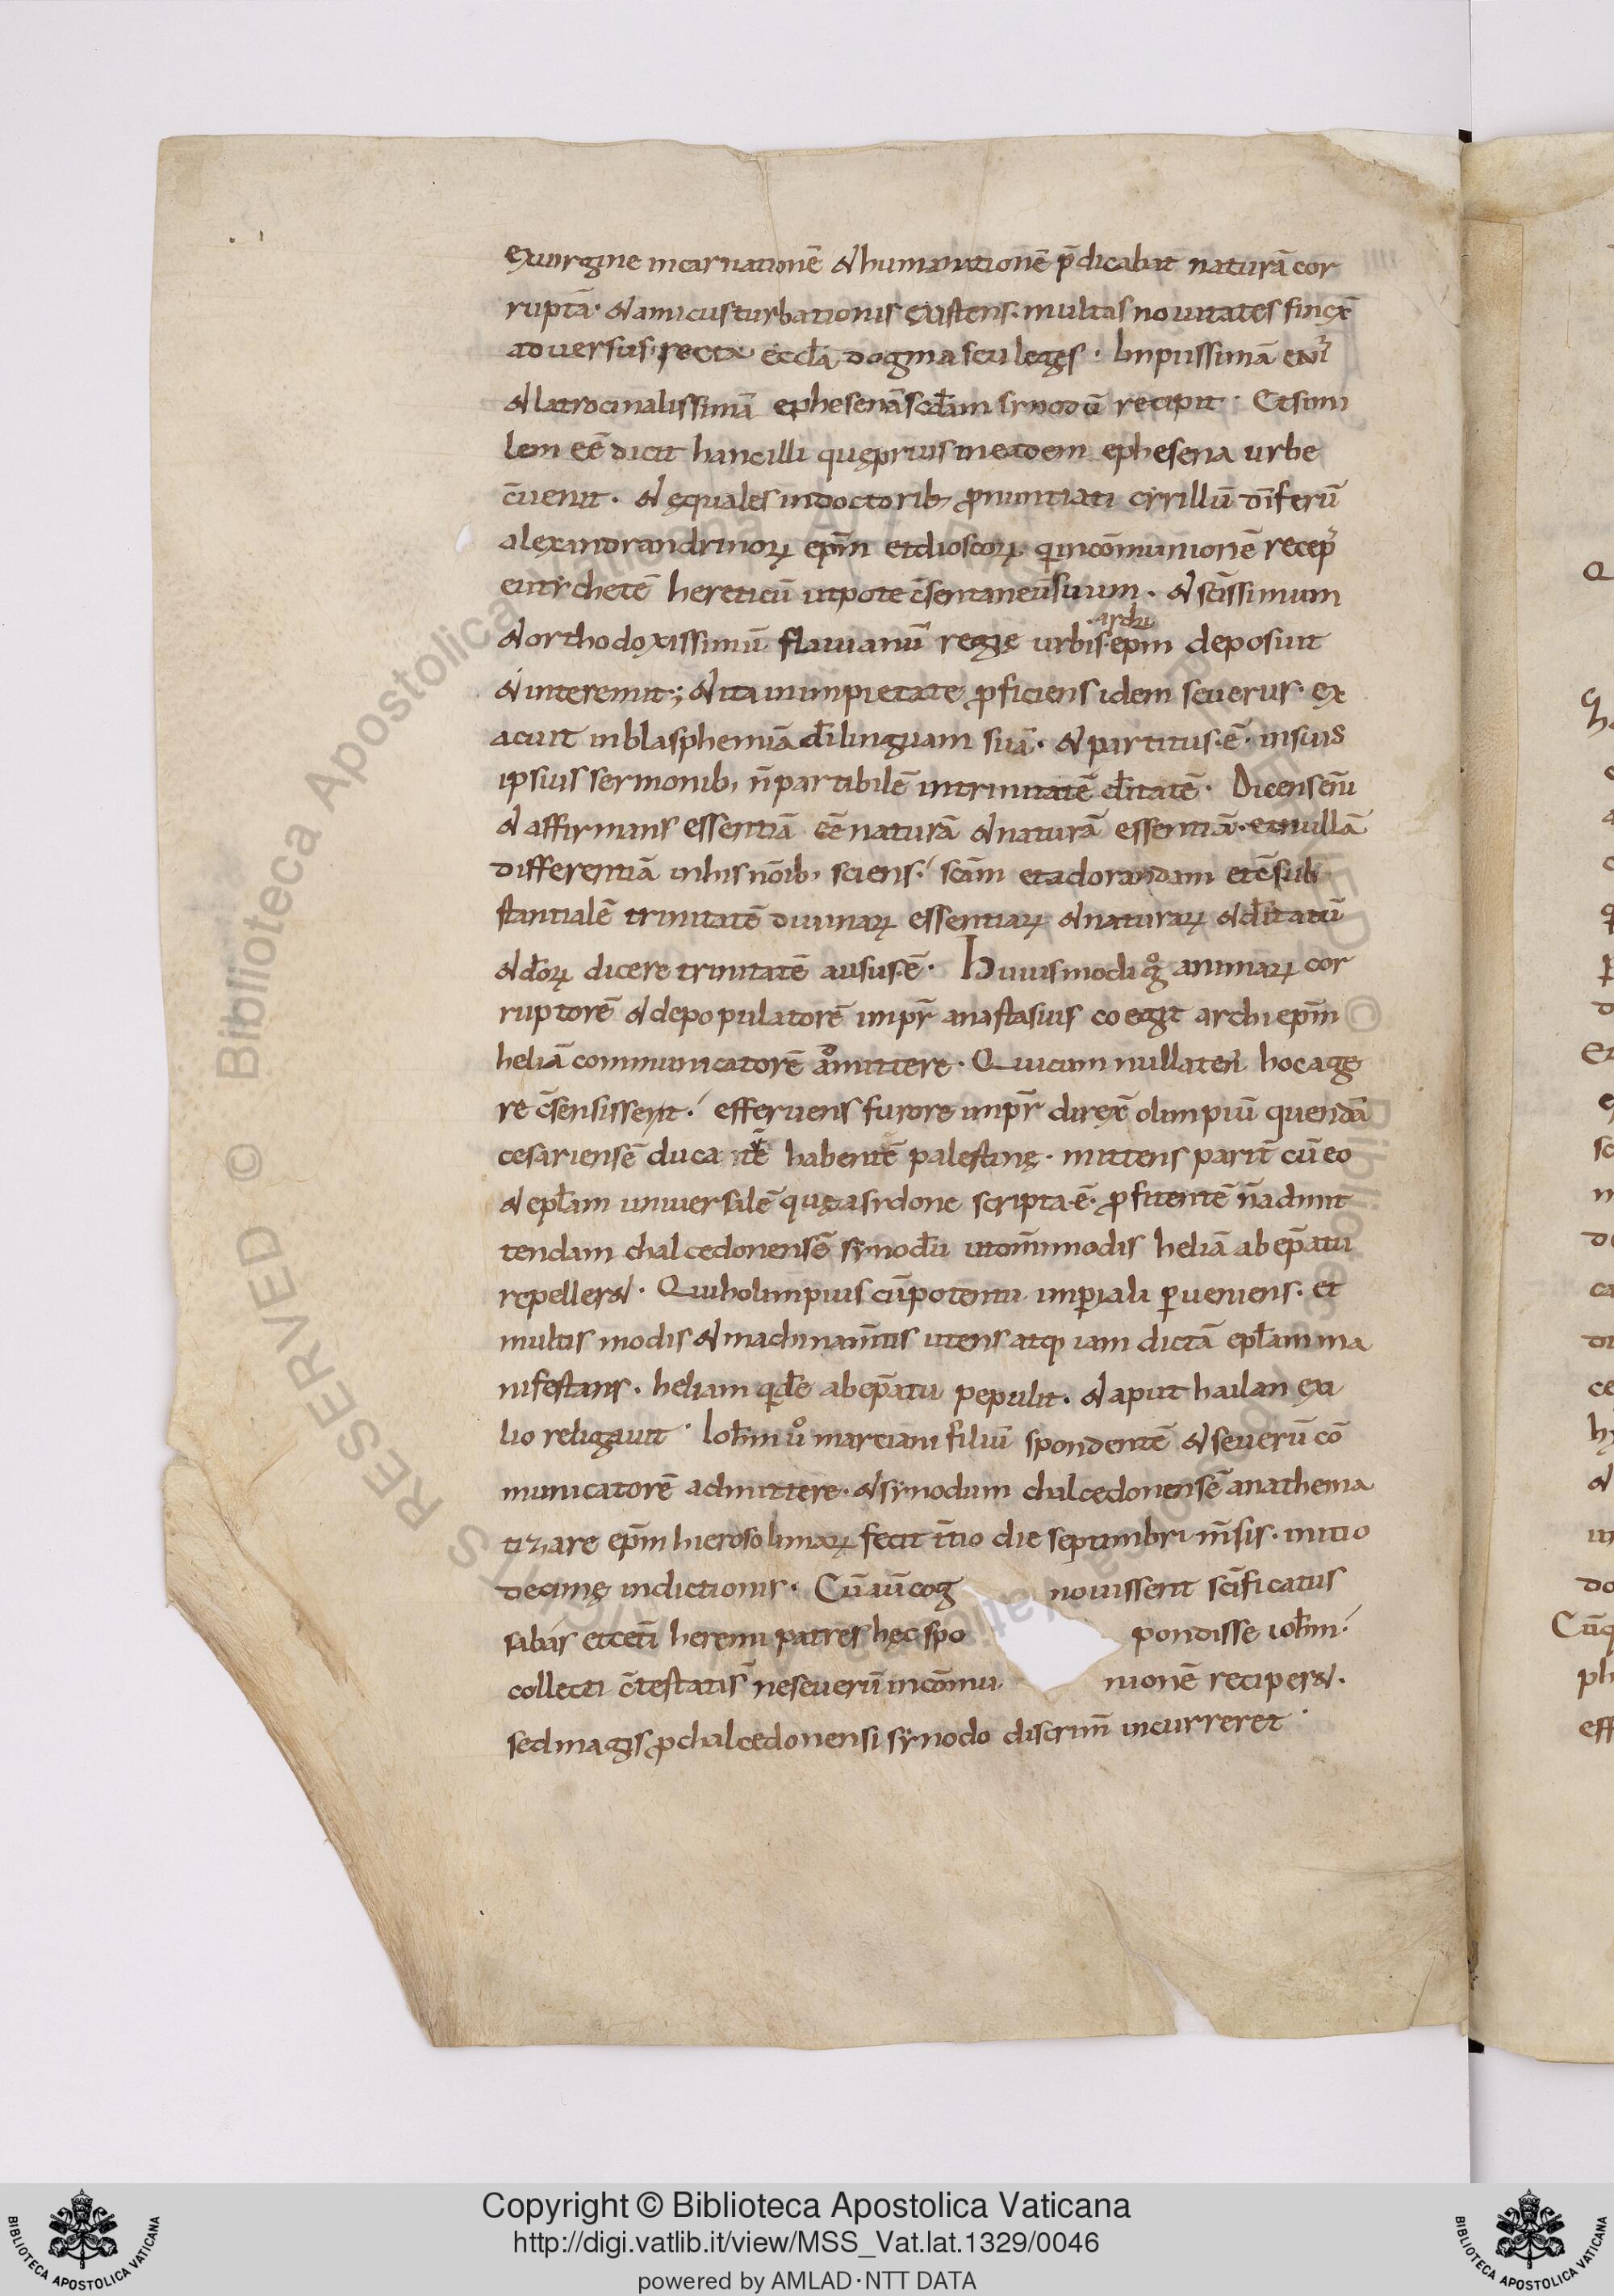 exuirgine incarnationē & humanationē p̄dicabat naturā cor
ruptā. & amicus turbationis existens. multas nouitates finx̄
aduersus recta eccl̄ā dogma seu leges. Impiissimā eni̅
& latrocinalissimā ephesenā scd̄am sinodū recipit. Et simi
lem eē dicit hanc illi quę prius in eadem ephesena urbe
c̄uenit. & equales in doctorib; ꝓnuntiati cyrillū dī̄ferū
alexandrandrinoꝝ ep̄m et dioscorꝝ. qui in cōmunionē recep̄
euthychetē hereticū utpote c̄sentaneū suum. & sc̄issimum
archi
& orthodoxissimū flauianū regię urbis. ep̄m deposuit
& interemit; & ita in impietate ꝓficiens idem seuerus. ex
acuit in blasphemiā d̄i linguam suā. & partitus. ē. in suis
ipsius sermonib; n̄ partibilē in trinitatē d̄itatē. Dicens en̄i
& affirmans essentiā eē naturā & naturā essentiā. et nullā
differentiā in his nōib; sciens. sc̄am et adorandam et c̄sub
stantialē trinitatē diuinaꝝ essentiaꝝ & naturaꝝ & d̄itatū
& d̄orꝝ dicere trinitatē ausus ē. Huiusmodi gͦ animaꝝ cor
ruptorē & depopulatorē impr̄ anastasius coegit archiep̄m
heliā communicatorē admittere. Qui cum nullaten' hoc age
re c̄sensissent. efferuens furore impr̄ direx̄ olimpiū quendā
cesariensē ducatū habentē palestinę. mittens parit̄ cū eo
& epl̄am uniuersalē quę a sidone scripta. ē. ꝓfitentē n̄ admit
tendam chalcedonensē synodū ut om̄imodis heliā ab ep̄atu
repeller&. Qui holimpius cū potentia imꝑiali ꝑueniens. et
multis modis & machinam̄tis utens atq; iam dictā epl̄am ma
nifestans. heliam qd̄e ab ep̄atu pepulit. & aput hailan exi
lio religauit. Ioh̄m uͦ marciani filiū spondentē & seuerū cō
municatorē admittere. & synodum chalcedonensē anathema
tizare ep̄m hierosolimaꝝ fecit t̄tio die septimbri m̄sis. initio
decimę indictionis. Cū aū cog nouissent sc̄ificatus
sabas et cet̄i heremi patres hęc spo pondisse ioh̄m.
collecti c̄testatis ne seuerū in cōmu nionē reciper&.
sed magis ꝓ chalcedonensi synodo discrim̄ incurreret.
Copyright © Biblioteca Apostolica Vaticana
http://digi.vatlib.it/view/MSS_Vat.lat.1329/0046
powered by AMLAD·NTT DATA